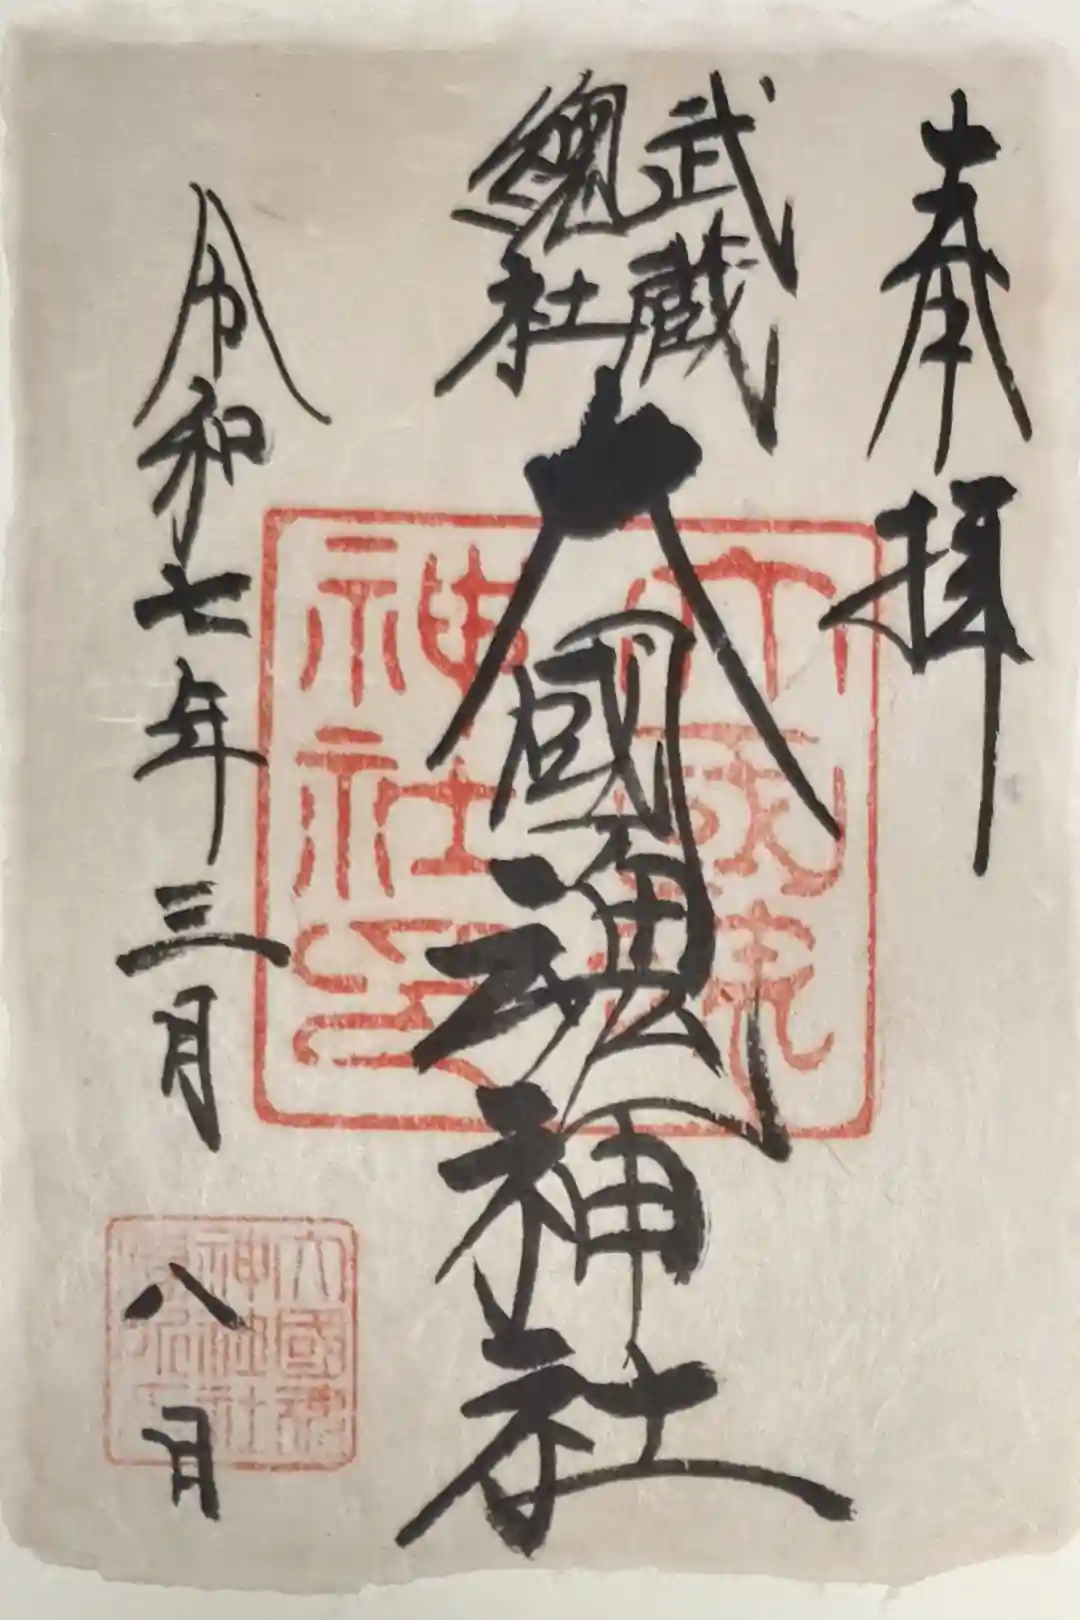 奉拝
武蔵
總社
大國魂神社
令和七年三月八日
大國魂
神社印
大國魂
神社